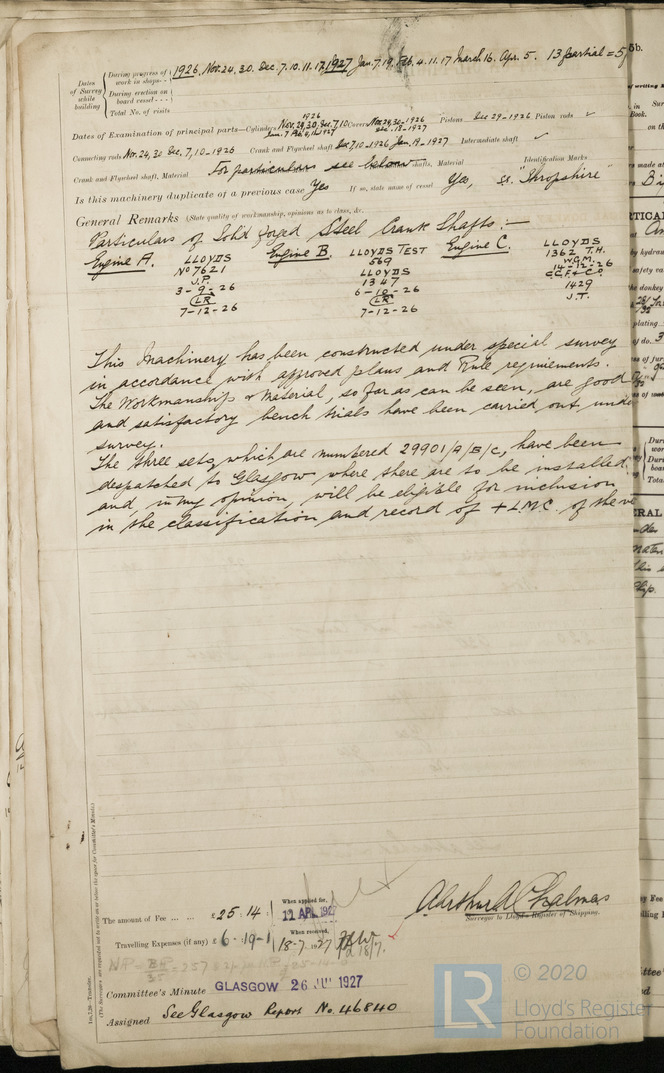 Dates of Survey while building
During progress of work in shops - - 1926, Nov. 24, 30. Dec. 7. 10. 11. 17, 1927 Jan. 7. 19, Feb. 4. 11. 17 March 16. Apr. 5. 13 partial = 5
During erection on board vessel - - -
Total No. of visits
Dates of Examination of principal parts—Cylinders Nov. 24, 30, Dec. 7, 10 1926 Jan. 7 Feb. 4, 11, 1927 Covers Nov. 24, 30 - 1926 Pistons Dec 29 - 1926 Piston rods ✓
Connecting rods Nov. 24, 30 Dec. 7, 10 - 1926 Crank and Flywheel shaft Dec 7, 10 - 1926 Jan. 19 - 1927 Intermediate shaft ✓
Crank and Flywheel shaft, Material For particulars see below shafts, Material Identification Marks
Is this machinery duplicate of a previous case Yes If so, state name of vessel Yes, ss. "Shropshire"
General Remarks (State quality of workmanship, opinions as to class, &c.
Particulars of Solid forged Steel Crank Shafts :—
Engine A. LLOYDS Engine B. LLOYDS TEST Engine C. LLOYDS
No 7621 569 1362 T.H.
J.P. LLOYDS W.G.M.
3-9-26 1347 14-12-26
LR 6-10-26 C.C.F. & Co.
7-12-26 LR 1429
7-12-26 J.T.
This Machinery has been constructed under special survey
in accordance with approved plans and Rule requirements.
The Workmanship & Material, so far as can be seen, are good
and satisfactory bench trials have been carried out under
survey.
The three sets, which are numbered 29901/A/B/C, have been
despatched to Glasgow where there are to be installed,
and, in my opinion, will be eligible for inclusion
in the classification and record of + LMC. of the
The amount of Fee ... ... £25 : 14 : When applied for, 12 APL 1927
Travelling Expenses (if any) £ 6 - 19 - 1 When received, 18 - 7 - 1927
Surveyor to Lloyd's Register of Shipping.
Committee's Minute GLASGOW 26 JUL 1927
Assigned See Glasgow Report No. 46840
© 2020
LR Lloyd's Register
Foundation